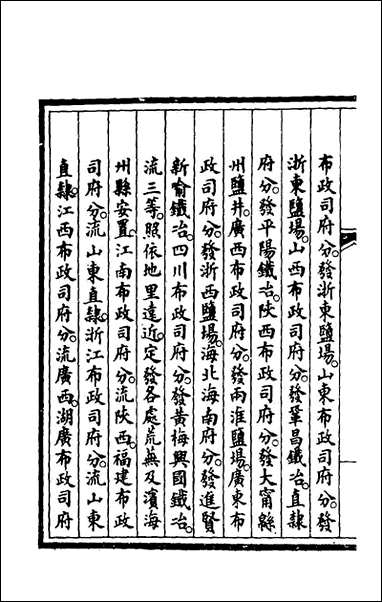 布政司府分。發浙東鹽場。山東布政司府分。發
浙東鹽場。山西布政司府分。發鞏昌鐵冶。直隸
府分。發平陽鐵冶。陜西布政司府分。發大甯綿
州鹽井。廣西布政司府分。發兩淮鹽場。廣東布
政司府分。發浙西鹽場。海北海南府分。發進賢
新喻鐵冶。四川布政司府分。發黃梅興國鐵冶。
流三等。照依地里遠近。定發各處荒蕪及濱海
州縣安置。江南布政司府分。流陜西。福建布政
司府分。流山東直隸。浙江布政司府分。流山東
直隸。江西布政司府分。流廣西。湖廣布政司府